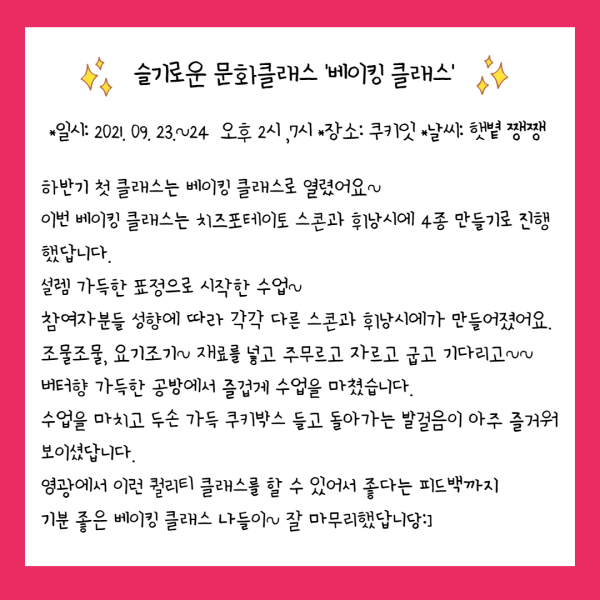 슬기로운 문화클래스 '베이킹 클래스'
*일시: 2021. 09. 23.~24 오후 2시 ,7시 *장소: 쿠키잇 *날씨: 햇볕 쨍쨍
하반기 첫 클래스는 베이킹 클래스로 열렸어요~
이번 베이킹 클래스는 치즈포테이토 스콘과 휘낭시에 4종 만들기로 진행
했답니다.
설렘 가득한 표정으로 시작한 수업~
참여자분들 성향에 따라 각각 다른 스콘과 휘낭시에가 만들어졌어요.
조물조물, 요기조기~ 재료를 넣고 주무르고 자르고 굽고 기다리고~~
버터향 가득한 공방에서 즐겁게 수업을 마쳤습니다.
수업을 마치고 두손 가득 쿠키박스 들고 돌아가는 발걸음이 아주 즐거워
보이셨답니다.
영광에서 이런 퀄리티 클래스를 할 수 있어서 좋다는 피드백까지
기분 좋은 베이킹 클래스 나들이~ 잘 마무리했답니당:]